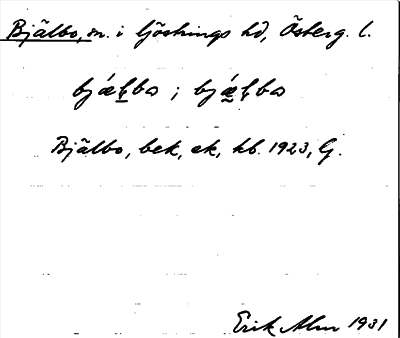 Bjälbo, sn. i Göstrings hd, Österg. l.
bjæ̀ɫbo ; bjæ̀ɫbo
Bjälbo, bek, ek, hb. 1923, G.
Erik Alm 1931